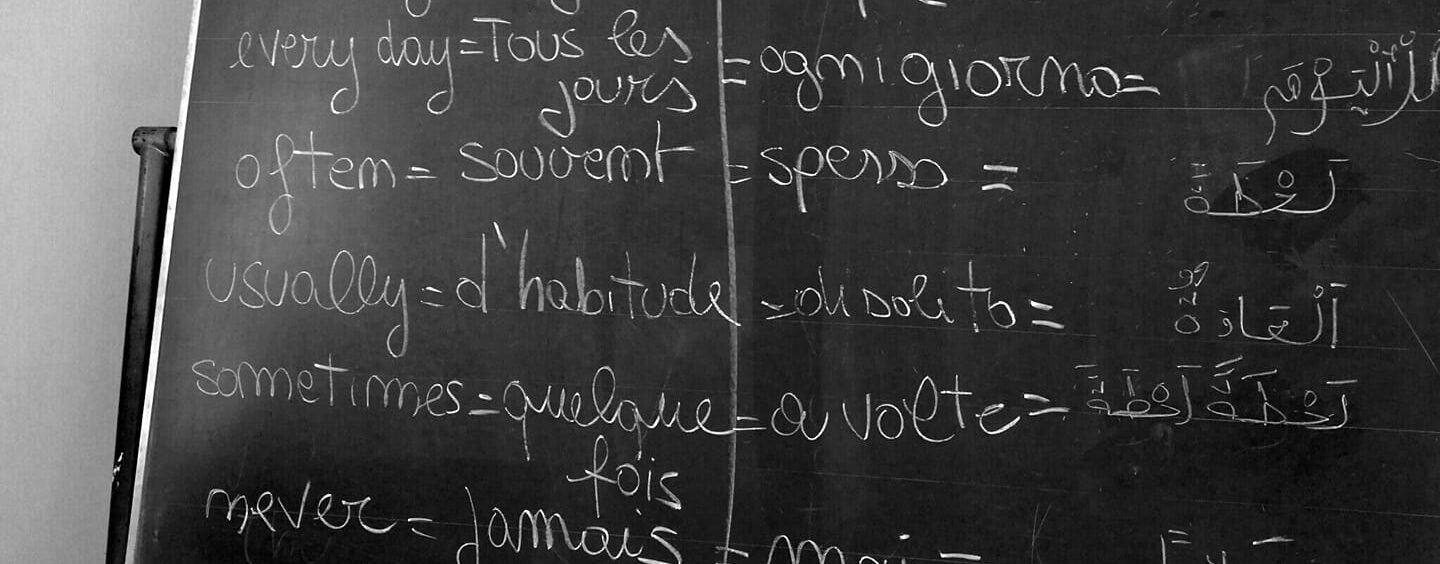 every day = Tous les
jours = ogni giorno =
often = souvent = spesso = لَحْظَةً
usually = d'habitude = di solito = اَلْعَادَةُ
sometimes = quelque = a volte = لَحْظَةً لَحْظَةً
fois
never = jamais = mai =